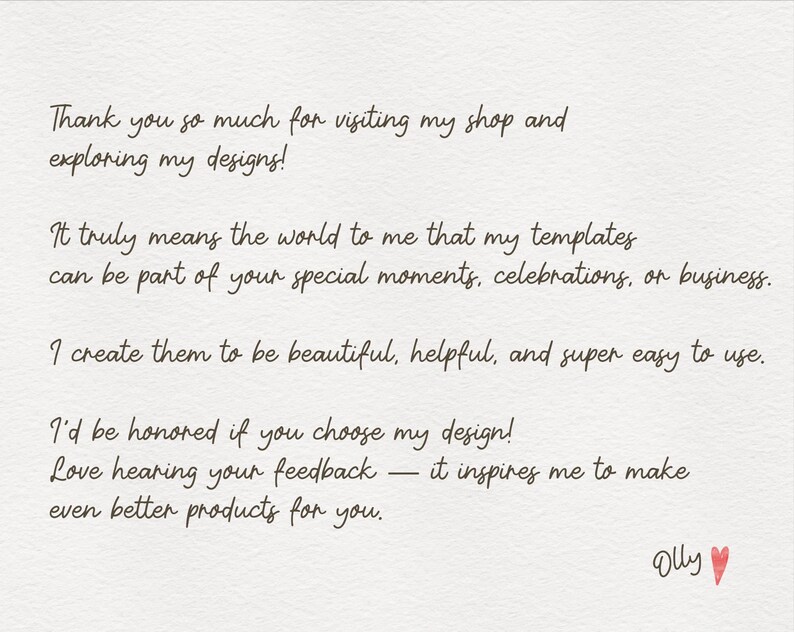 Thank you so much for visiting my shop and
exploring my designs!
It truly means the world to me that my templates
can be part of your special moments, celebrations, or business.
I create them to be beautiful, helpful, and super easy to use.
I'd be honored if you choose my design!
Love hearing your feedback — it inspires me to make
even better products for you.
Olly